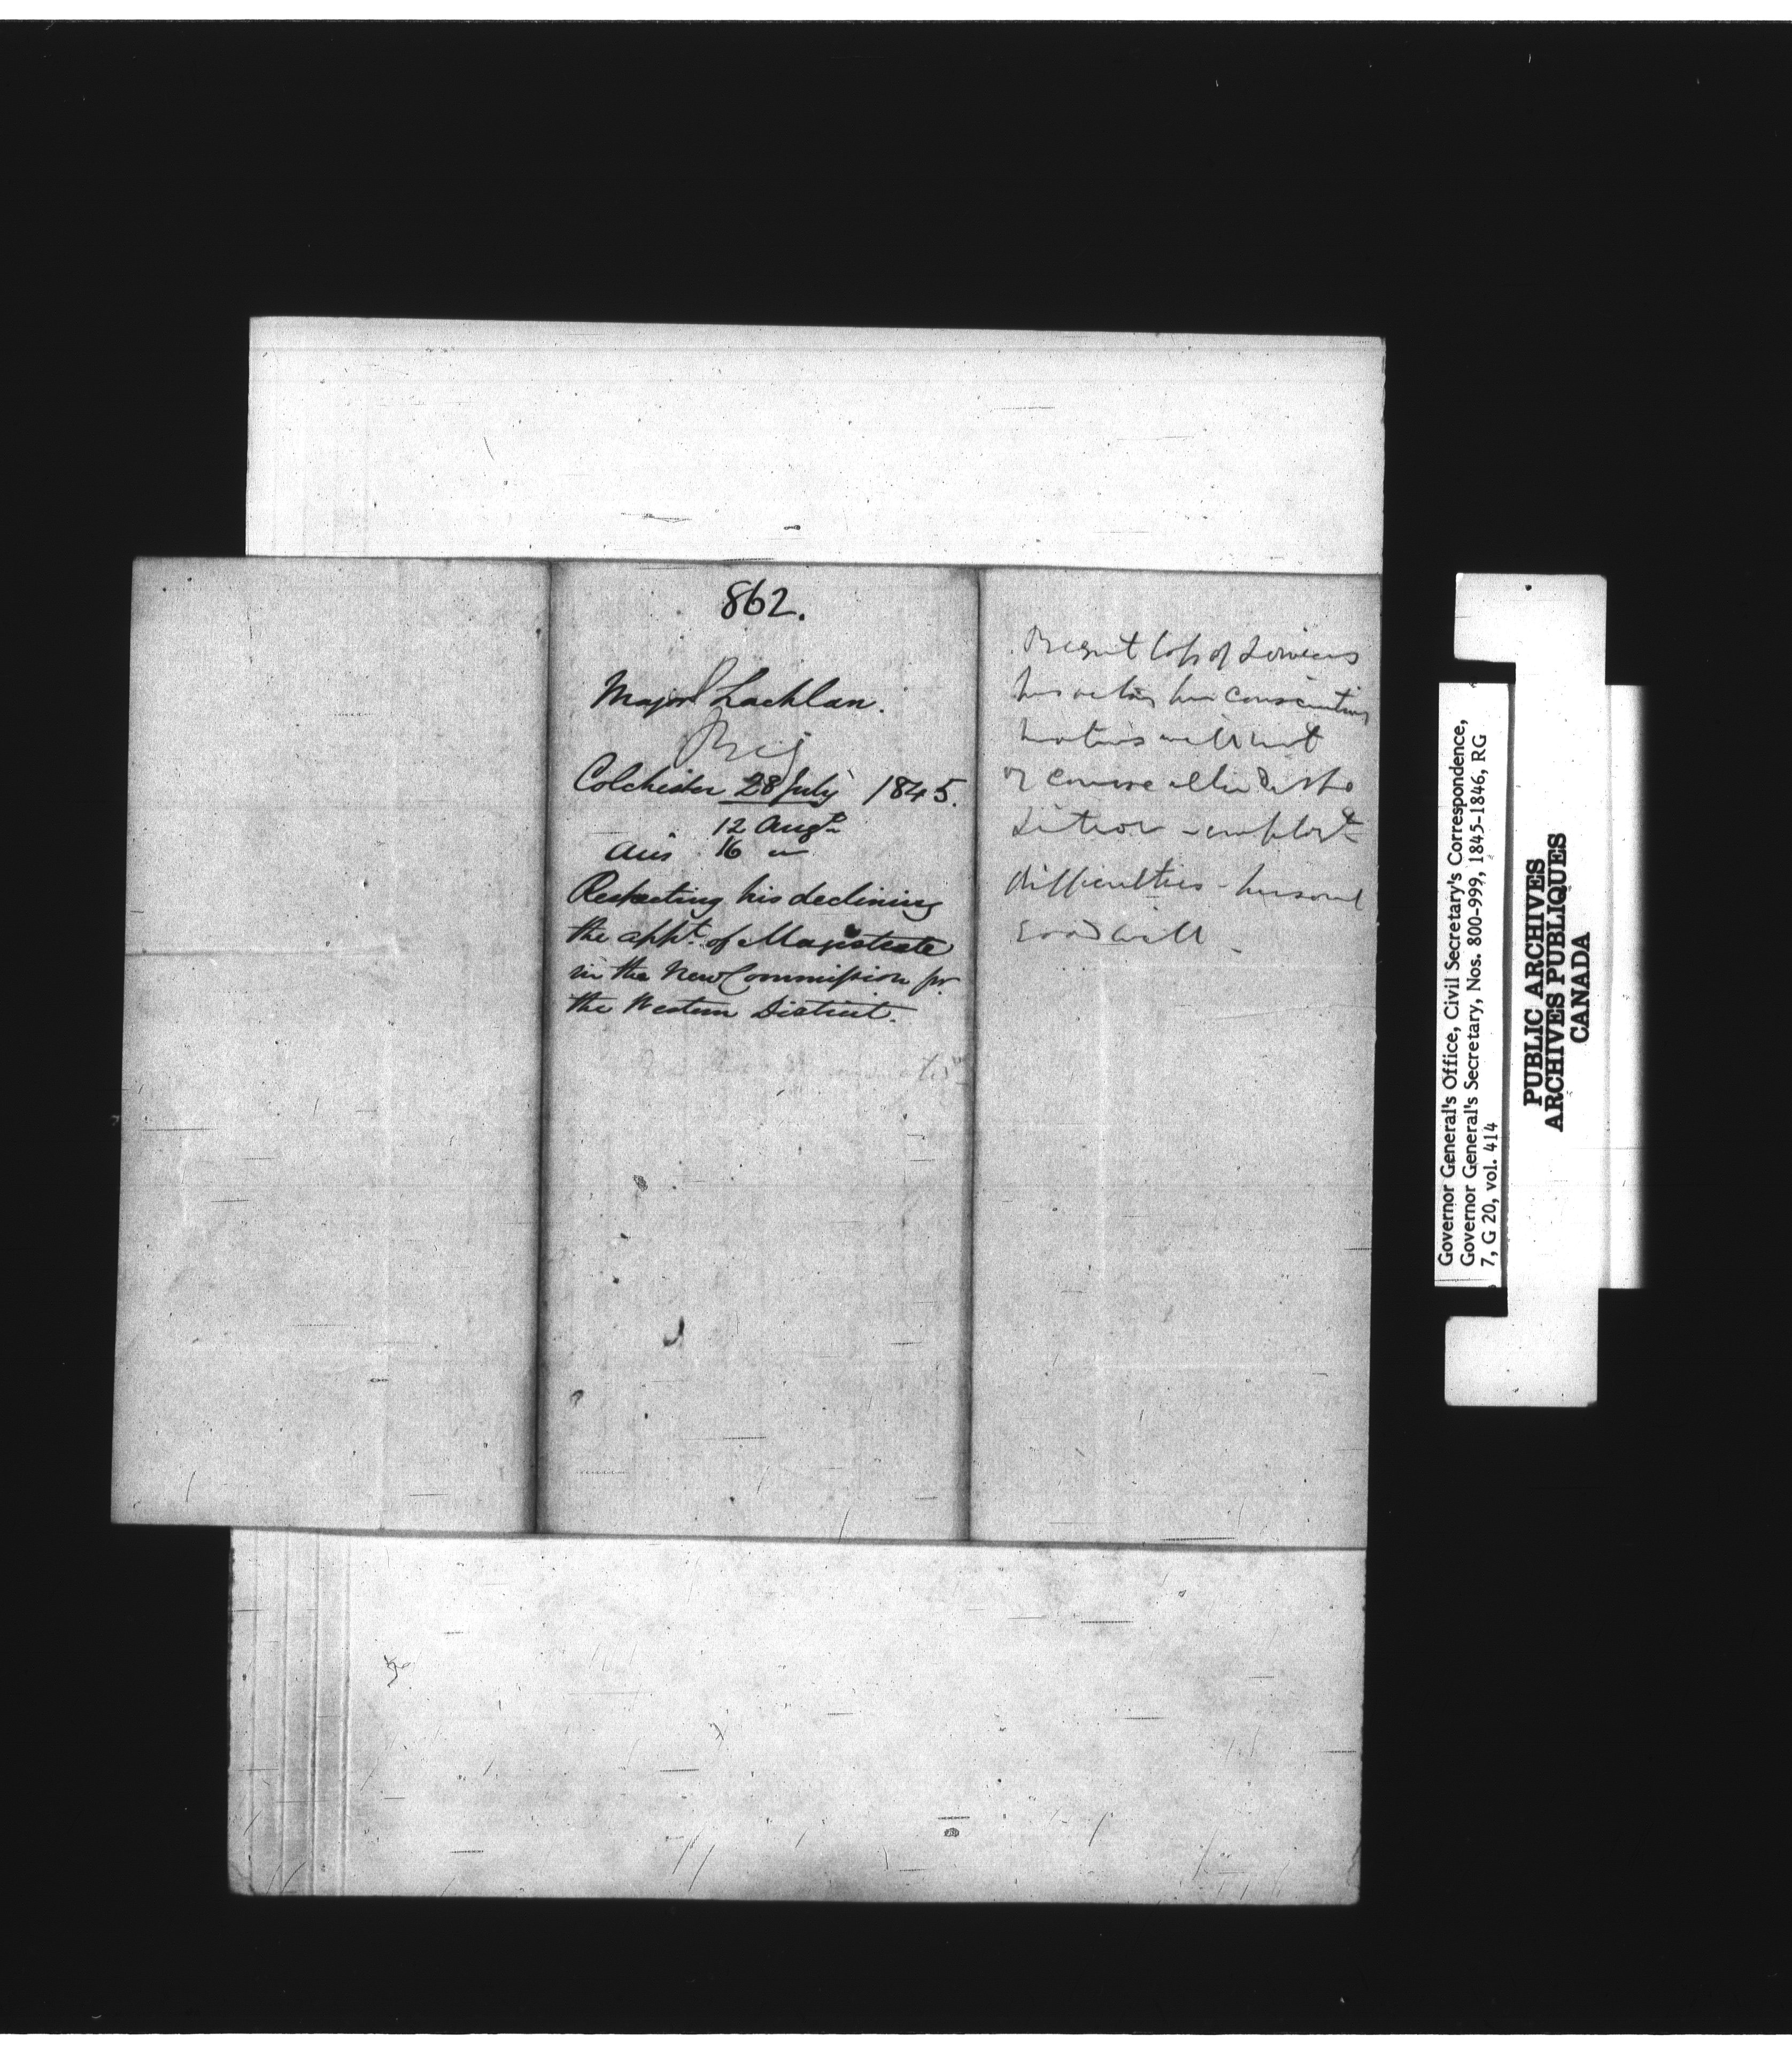 862.
Major Lachlan.
Colchester 28 July 1845.
12 Augt
Ans 16 "
Respecting his declining
the appt. of Magistrate
in the New Commission for
the Western District.
Regret loss of Services
his conscientious
motives will not
of course
difficulties - personal
Good will -
Governor General's Office, Civil Secretary's Correspondence,
Governor General's Secretary, Nos. 800-999, 1845-1846, RG
7, G 20, vol. 414
PUBLIC ARCHIVES
ARCHIVES PUBLIQUES
CANADA